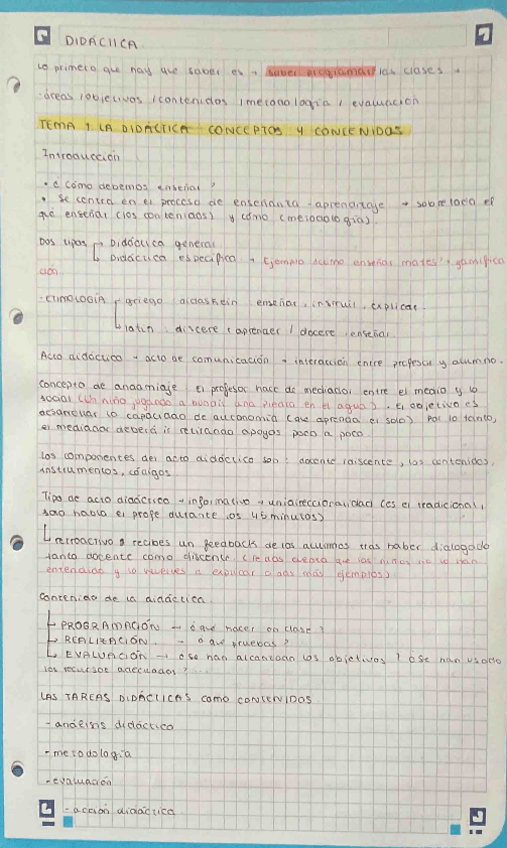 DIDÁCTICA.
Lo primero que hay que saber es → saber programar las clases →
áreas / objetivos / contenidos / metodología / evaluación
TEMA 1: LA DIDÁCTICA CONCEPTOS Y CONTENIDOS
Introducción
• ¿Cómo debemos enseñar?
• Se centra en el proceso de enseñanza-aprendizaje → sobre todo el
qué enseñar (los contenidos) y cómo (metodología).
Dos tipos Didáctica general
Didáctica específica → Ejemplo: ¿cómo enseñar mates? → gamifica
ción
-ETIMOLOGÍA griego didaskein enseñar, instruir, explicar.
latín: discere: aprender / docere: enseñar.
Acto didáctico → acto de comunicación → interacción entre profesor y alumno.
Concepto de andamiaje: El profesor hace de mediador entre el medio y lo
social (un niño jugando a una piedra en el agua). El objetivo es
desarrollar la capacidad de autonomía (que aprenda él solo) Por lo tanto,
el mediador deberá ir retirando apoyos poco a poco.
Los componentes del acto didáctico son: docente / discente, los contenidos,
instrumentos, códigos.
Tipo de acto didáctico → informativo → unidireccionalidad (es el tradicional,
solo habla el profe durante los 45 minutos)
retroactivo → recibes un feedback de los alumnos tras haber dialogado
tanto docente como discente (te das cuenta que los niños no lo han
entendido y lo vuelves a explicar o das más ejemplos)
Contenido de la didáctica
PROGRAMACIÓN → ¿qué hacer en clase?
REALIZACIÓN → ¿qué pruebas?
EVALUACIÓN → ¿Se han alcanzado los objetivos? ¿Se han usado
los recursos adecuados?...
LAS TAREAS DIDÁCTICAS COMO CONTENIDOS
-análisis didáctico
-metodología
-evaluación
-acción didáctica